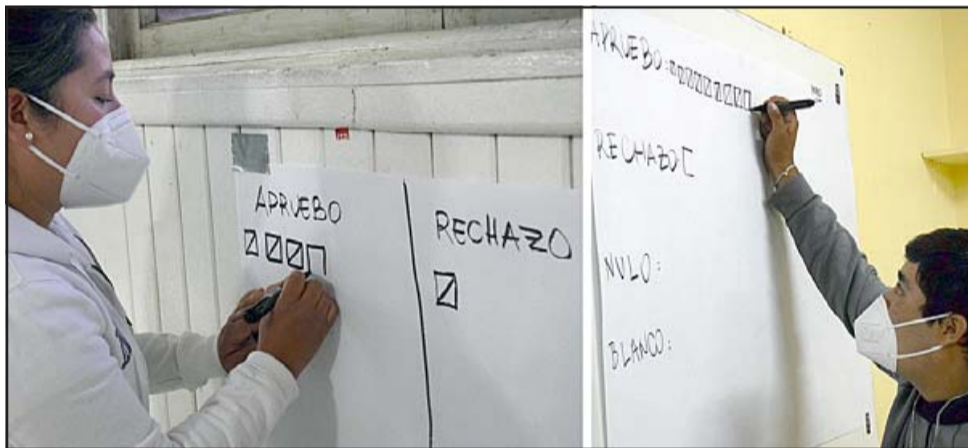 APRUEBO
RECHAZO
APRUEBO:
RECHAZO:
NULO:
BLANCO: